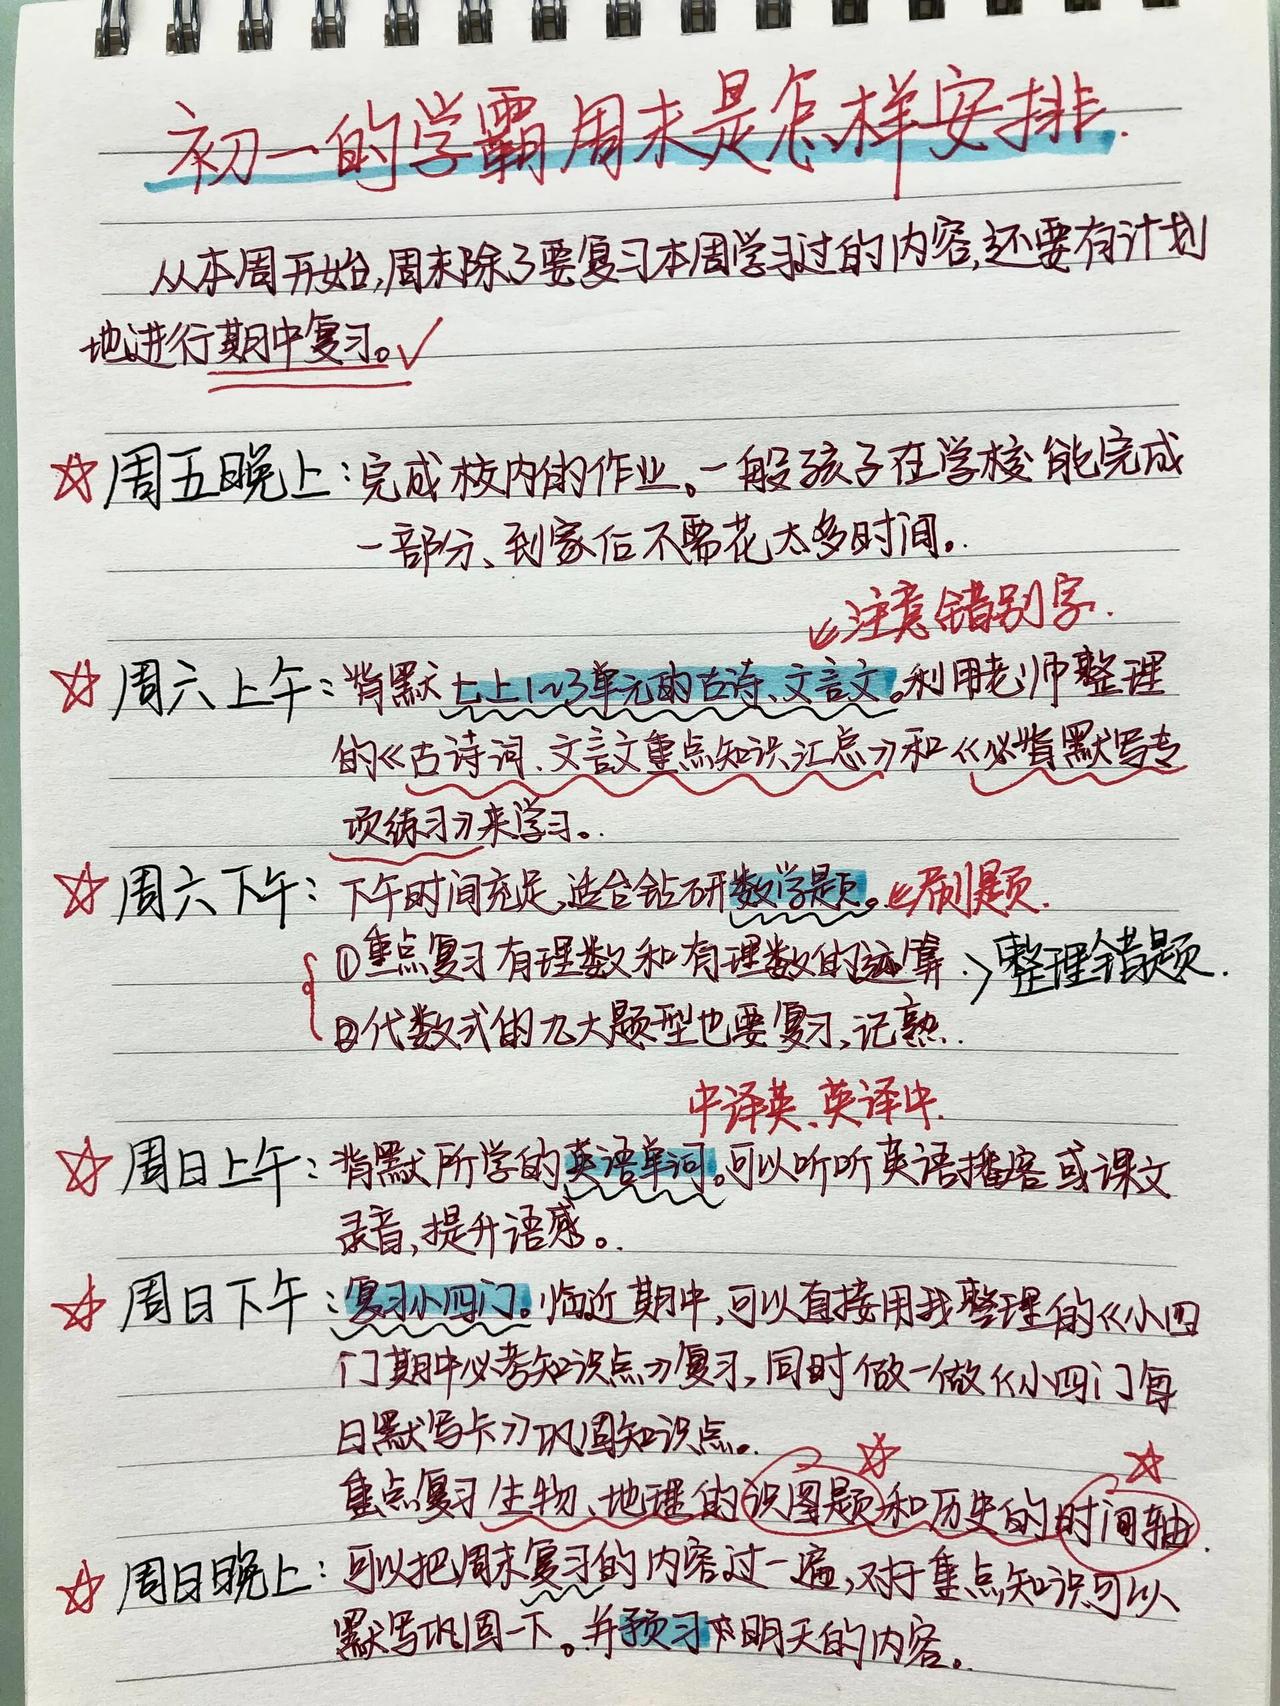 初一的学霸周末是怎样安排.
从本周开始,周末除了要复习本周学习过的内容,还要有计划
地进行期中复习。✓
☆周五晚上:完成校内的作业。一般孩子在学校能完成
一部分、到家后不需花太多时间。
↙注意错别字.
☆周六上午:背默七上1~3单元的古诗、文言文。利用老师整理
的《古诗词、文言文重点知识汇总》和《必背默写专
项练习》来学习。
☆周六下午:下午时间充足,适合钻研数学题。↙刷题.
①重点复习有理数和有理数的运算.>整理错题.
②代数式的九大题型也要复习,记熟.
中译英、英译中.
☆周日上午:背默所学的英语单词。可以听听英语播客或课文
录音,提升语感。
☆周日下午:复习小四门。临近期中,可以直接用我整理的《小四
门期中必考知识点》复习,同时做一做《小四门每
日默写卡》巩固知识点。
重点复习生物、地理的识图题和历史的时间轴.
☆周日晚上:可以把周末复习的内容过一遍,对于重点知识可以
默写巩固一下。并预习明天的内容。